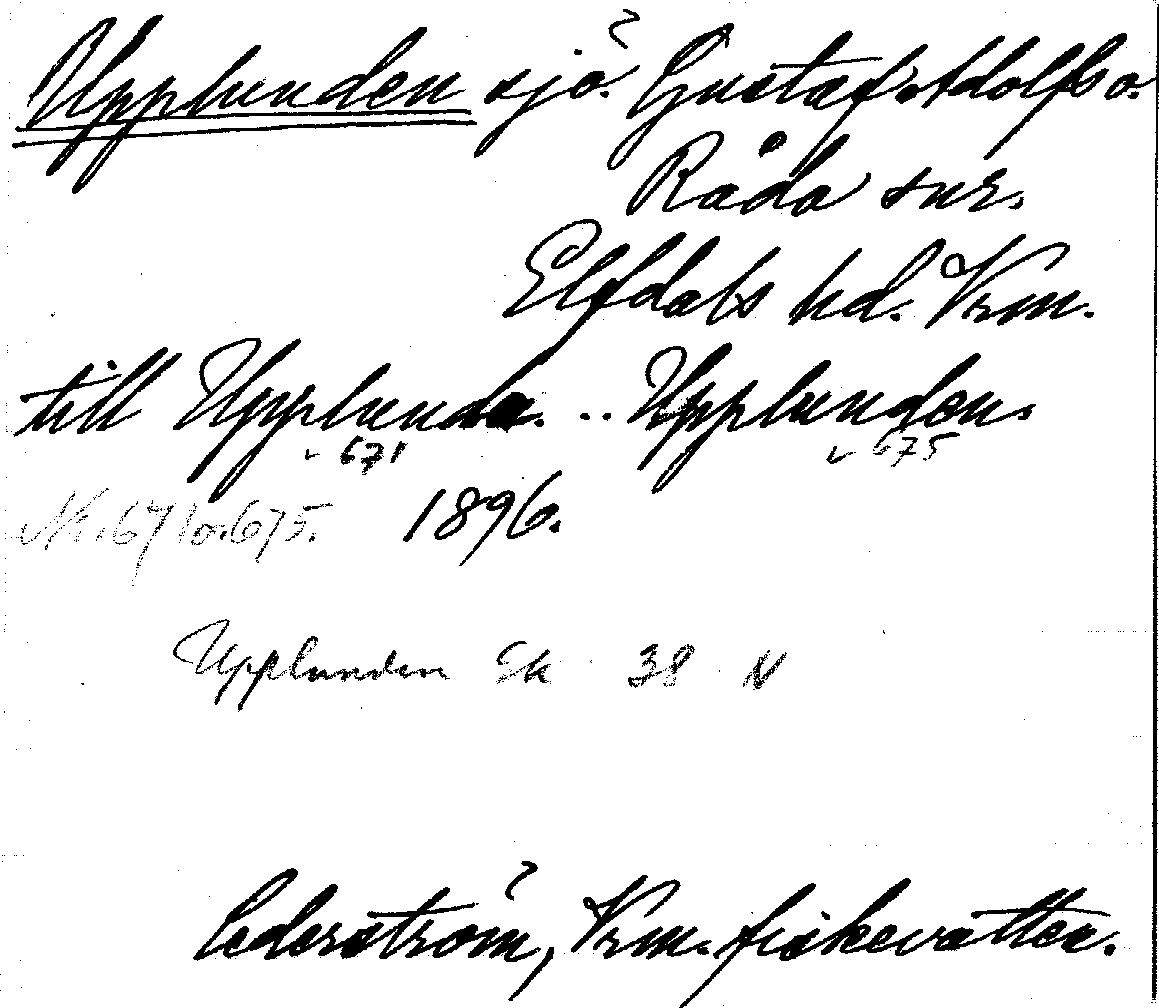 Upplunden sjö. Gustaf Adolfs o.
Råda snr.
Elfdals hd. Vrm.
till Upplunda. .. Upplunden.
v 671 v 675
Nr. 671 o. 675. 1896.
Upplunden Ek 38 N
Cederström, Vrm. fiskevatten.